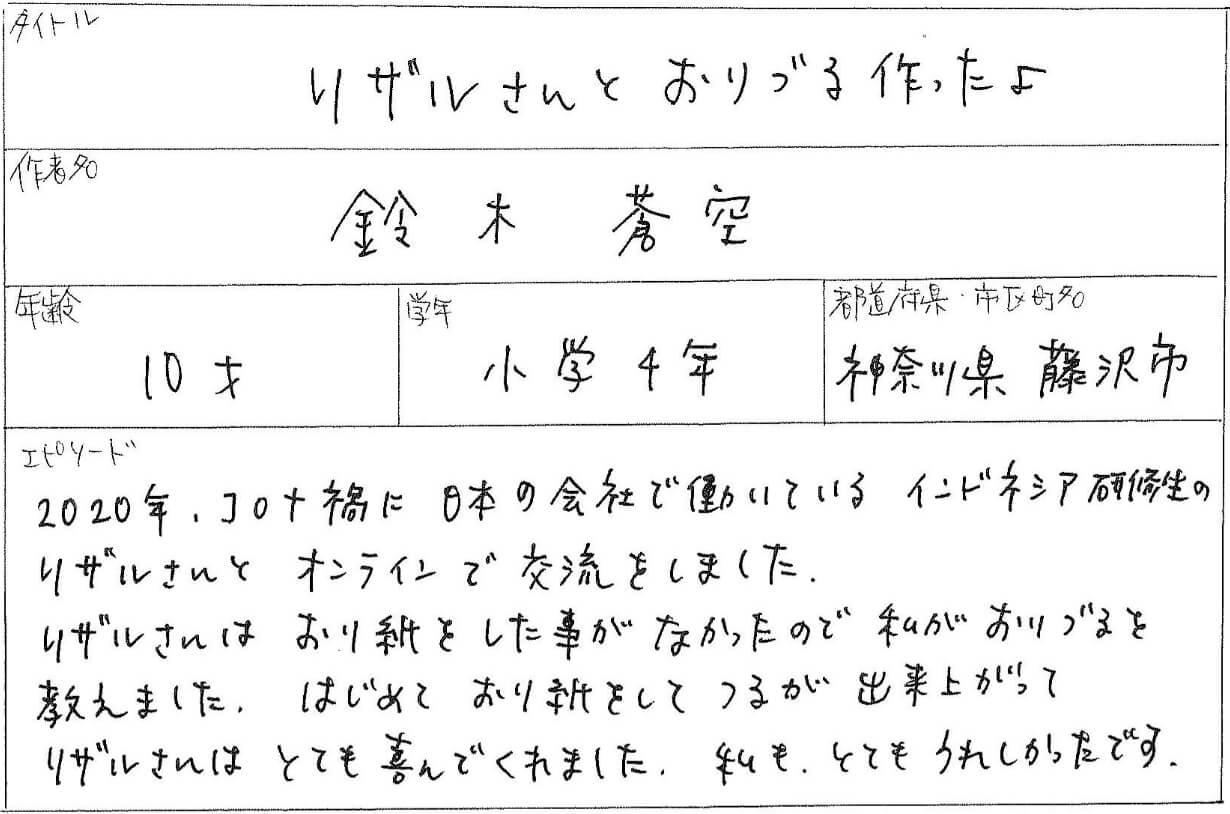 タイトル
リザルさんと おりづる 作ったよ
作者名
鈴木 蒼空
年齢
10才
学年
小学4年
都道府県・市区町名
神奈川県 藤沢市
エピソード
2020年、コロナ禍に 日本の会社で働いている インドネシア研修生の
リザルさんと オンラインで 交流をしました.
リザルさんは おり紙を した事が なかったので 私が おりづるを
教えました. はじめて おり紙をして つるが 出来上がって
リザルさんは とても喜んでくれました. 私も、とても うれしかったです.